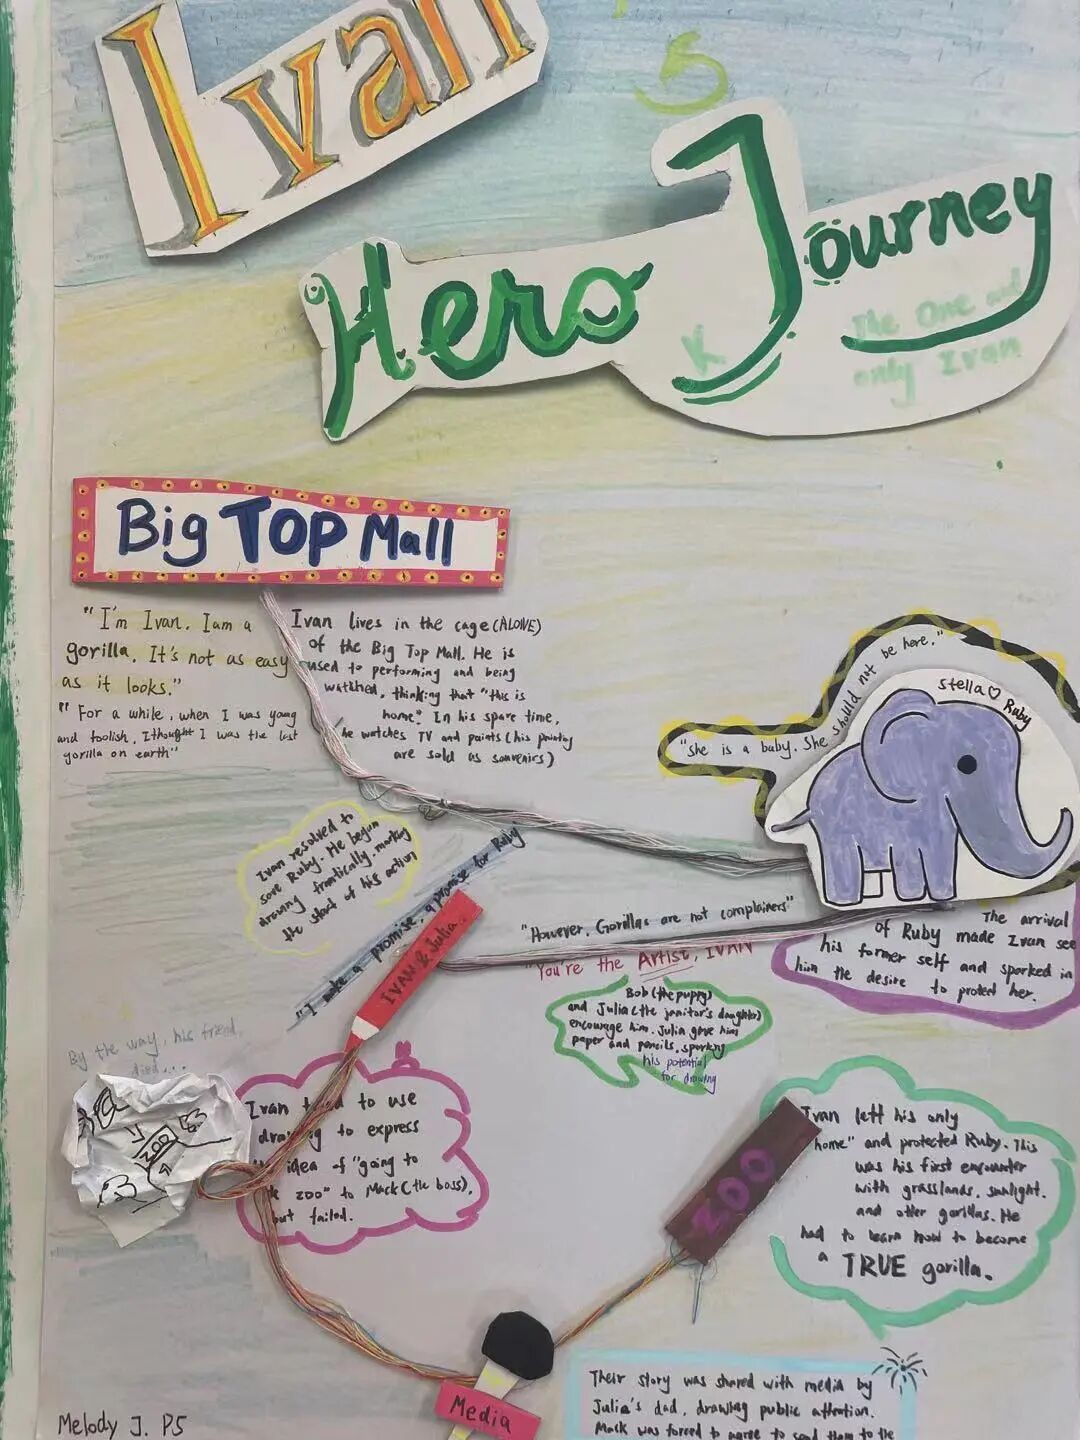 Ivan
's
Hero Journey
The One and
only Ivan
K
Big TOP Mall
"I'm Ivan. I am a
gorilla. It's not as easy
as it looks."
"For a while, when I was young
and foolish, I thought I was the last
gorilla on earth"
Ivan lives in the cage (ALONE)
of the Big Top Mall. He is
used to performing and being
watched, thinking that "this is
home". In his spare time,
he watches TV and paints (his painting
are sold as souvenirs)
"she is a baby. She should not be here."
Stella ♡ Ruby
The arrival
of Ruby made Ivan see
his former self and sparked in
him the desire to protect her.
Ivan resolved to
save Ruby. He began
drawing frantically, marking
the start of his action
"I make a promise, a promise for Ruby
IVAN & Julia
"However, Gorillas are not complainers"
"You're the Artist, IVAN
Bob (the puppy)
and Julia (the janitor's daughter)
encourage him. Julia gave him
paper and pencils, sparking
his potential
for drawing
By the way, his friend
died...
ZOO
Ivan to use
drawing to express
idea of "going to
zoo" to Mack (the boss),
but failed.
ZOO
Ivan left his only
home" and protected Ruby. This
was his first encounter
with grasslands, sunlight,
and other gorillas. He
had to learn how to become
a TRUE gorilla.
Media
Their story was shared with media by
Julia's dad, drawing public attention.
Mack was forced to agree to send them to the
Melody J. P5